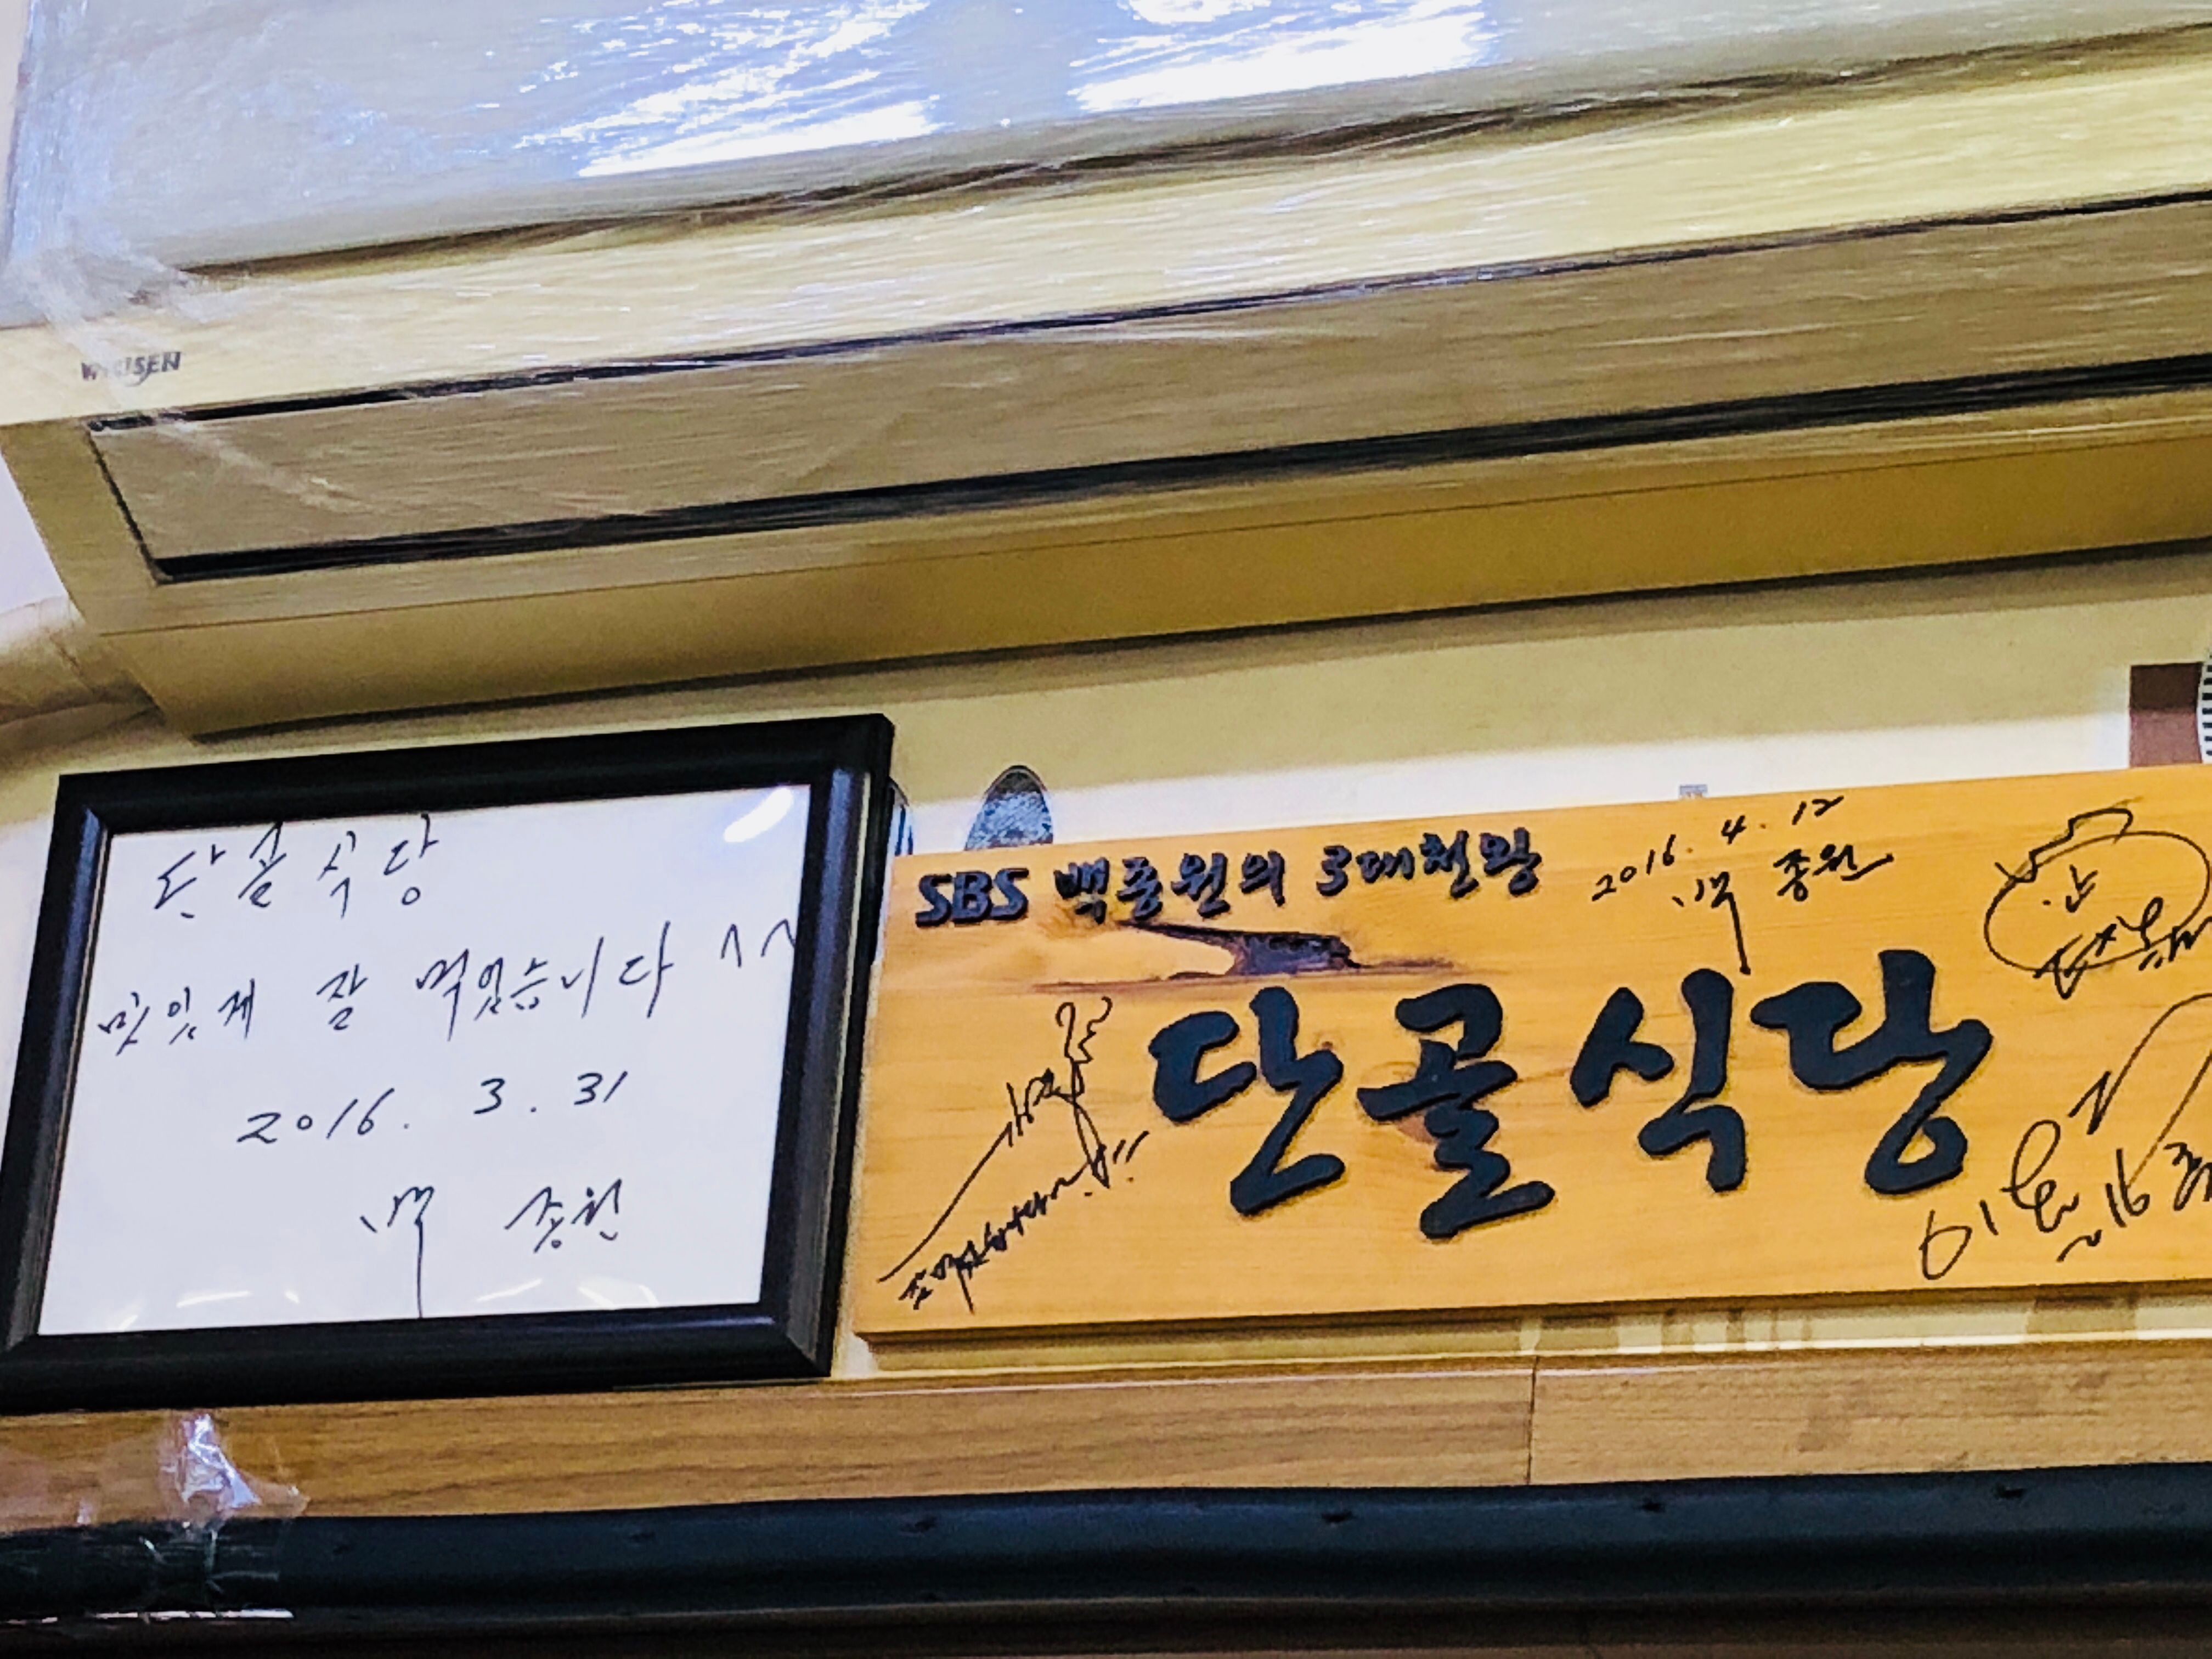 WHISEN
단골식당
맛있게 잘 먹었습니다 ^^
2016. 3. 31
백종원
SBS 백종원의 3대천왕
2016. 4. 12
백종원
단골식당
잘 먹었습니다~!!
2016